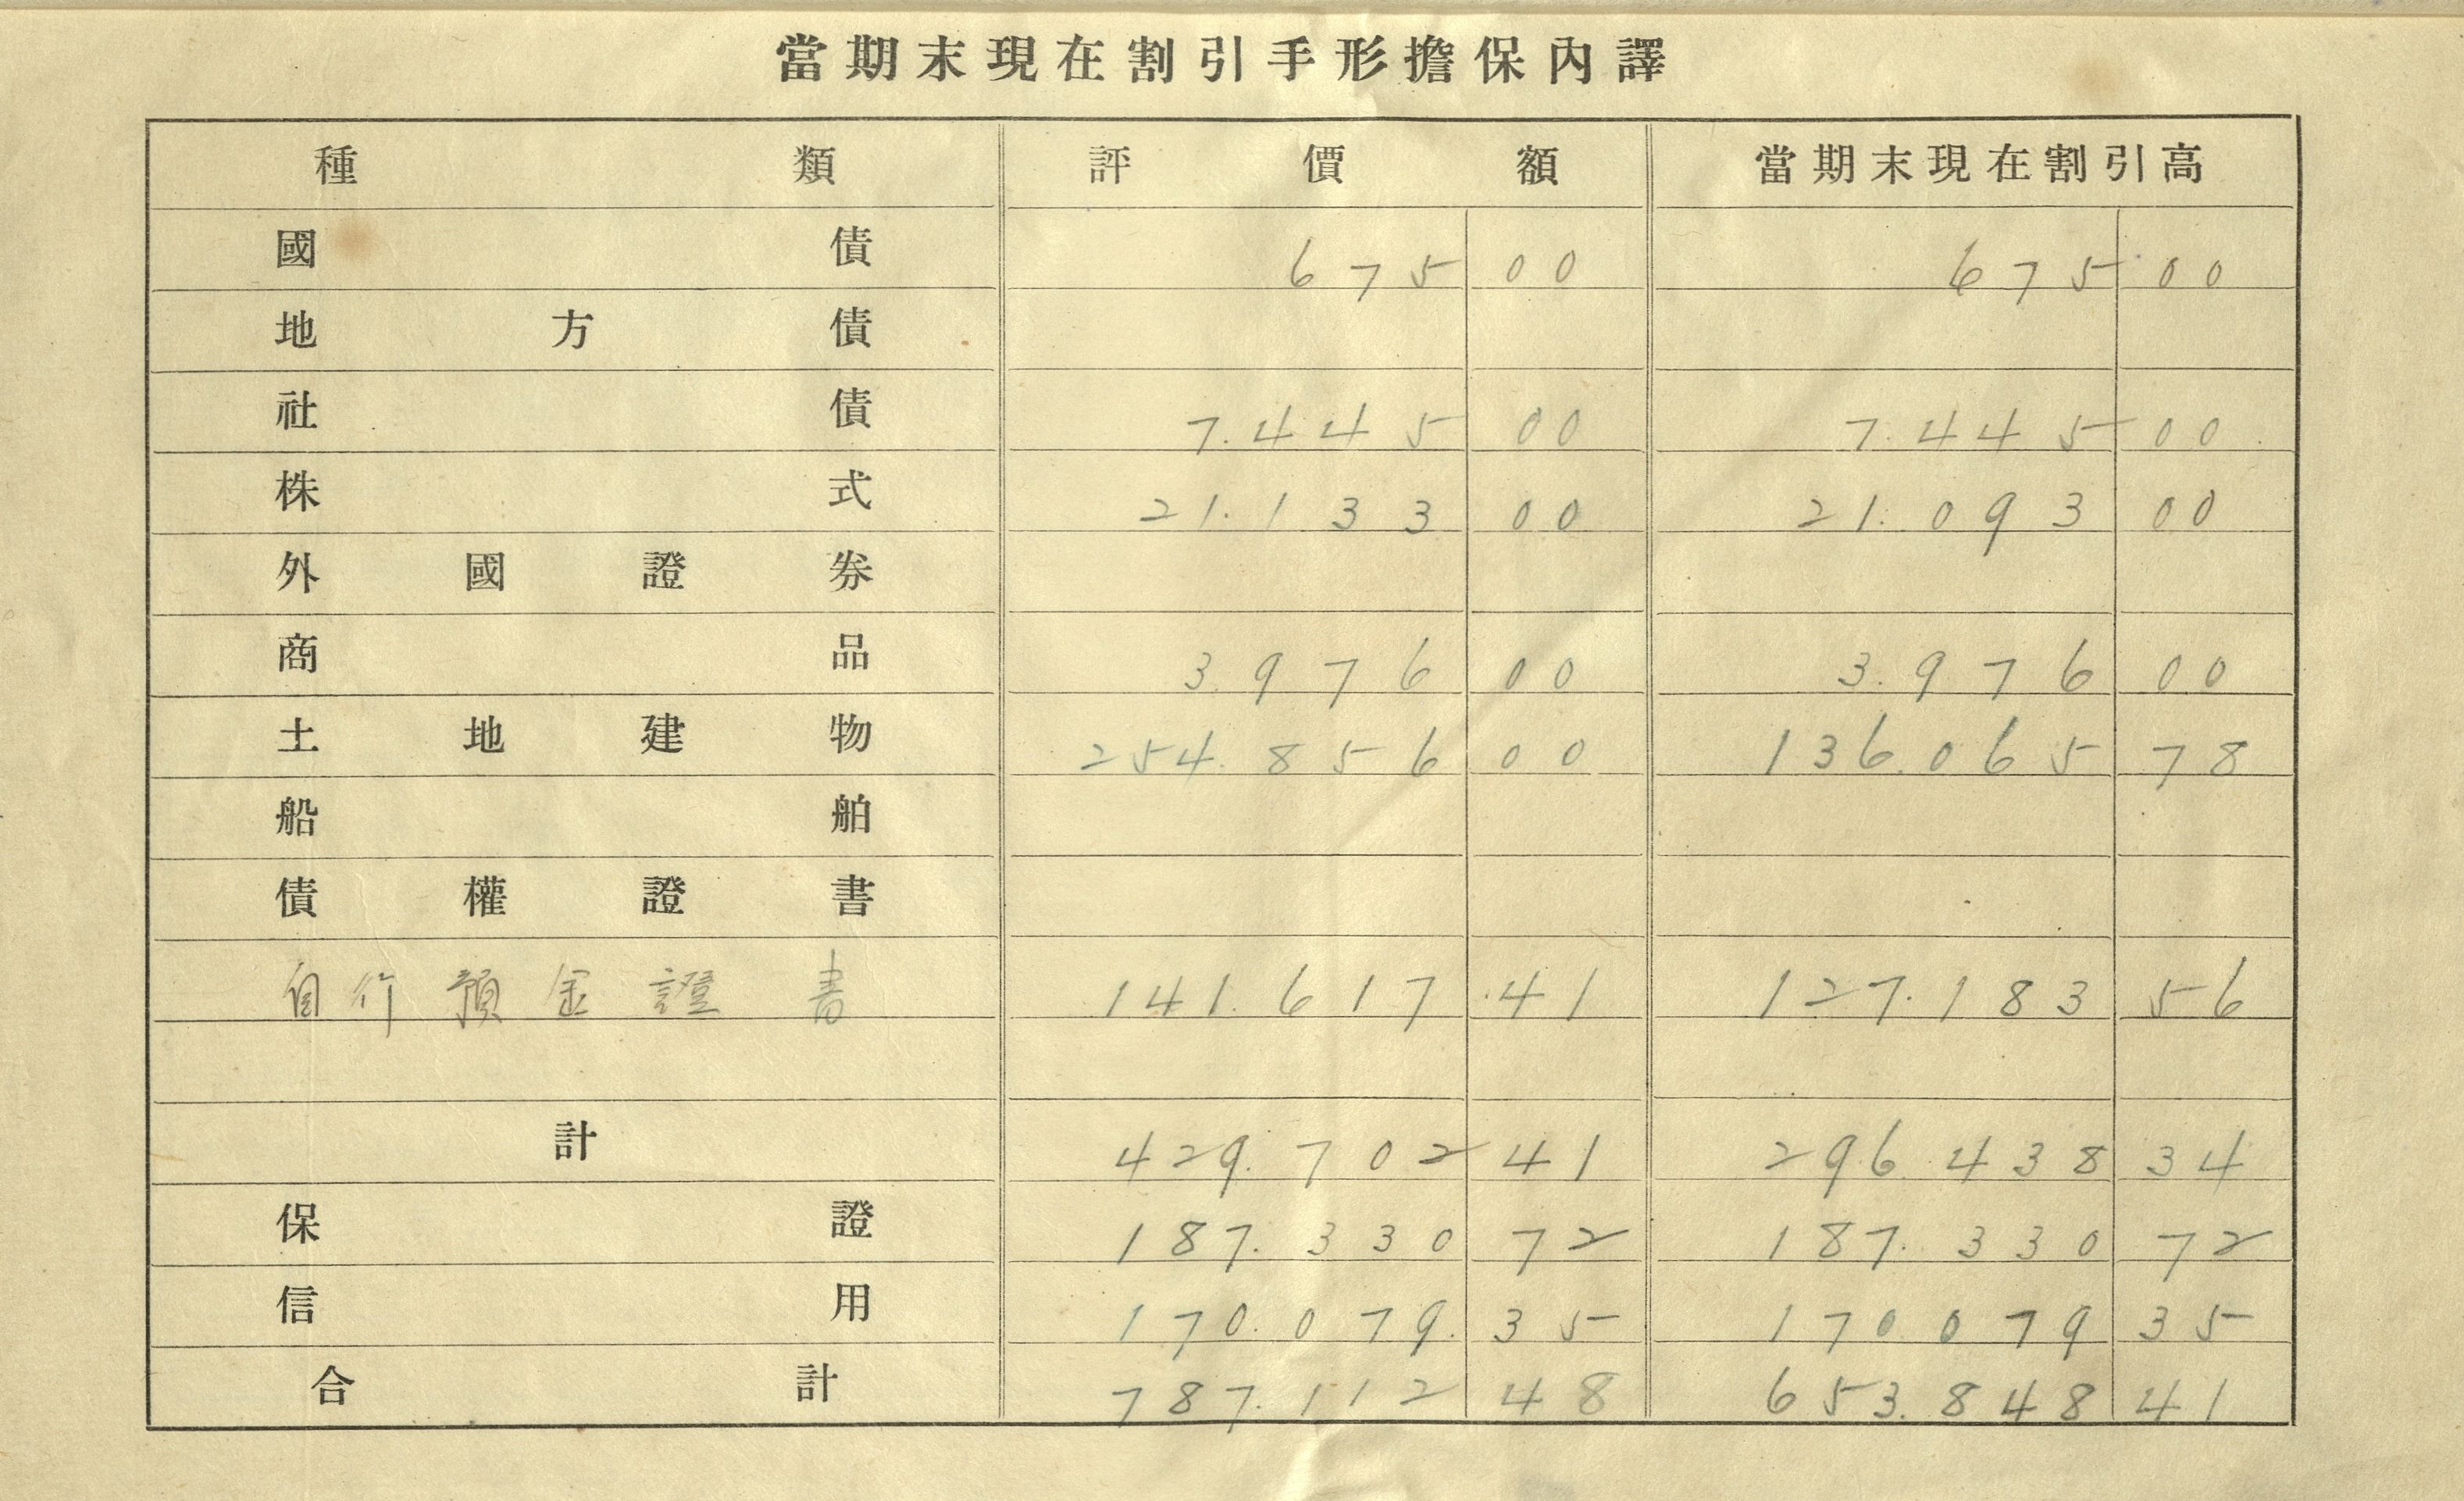 當期末現在割引手形擔保內譯
種類 評價額 當期末現在割引高
國債 675 00 675 00
地方債
社債 7.445 00 7.445 00
株式 21.133 00 21.093 00
外國證券
商品 3.976 00 3.976 00
土地建物 254.856 00 136.065 78
船舶
債權證書
自行預金證書 141.617 41 127.183 56
計 429.702 41 296.438 34
保證 187.330 72 187.330 72
信用 170.079 35 170079 35
合計 787.112 48 653.848 41